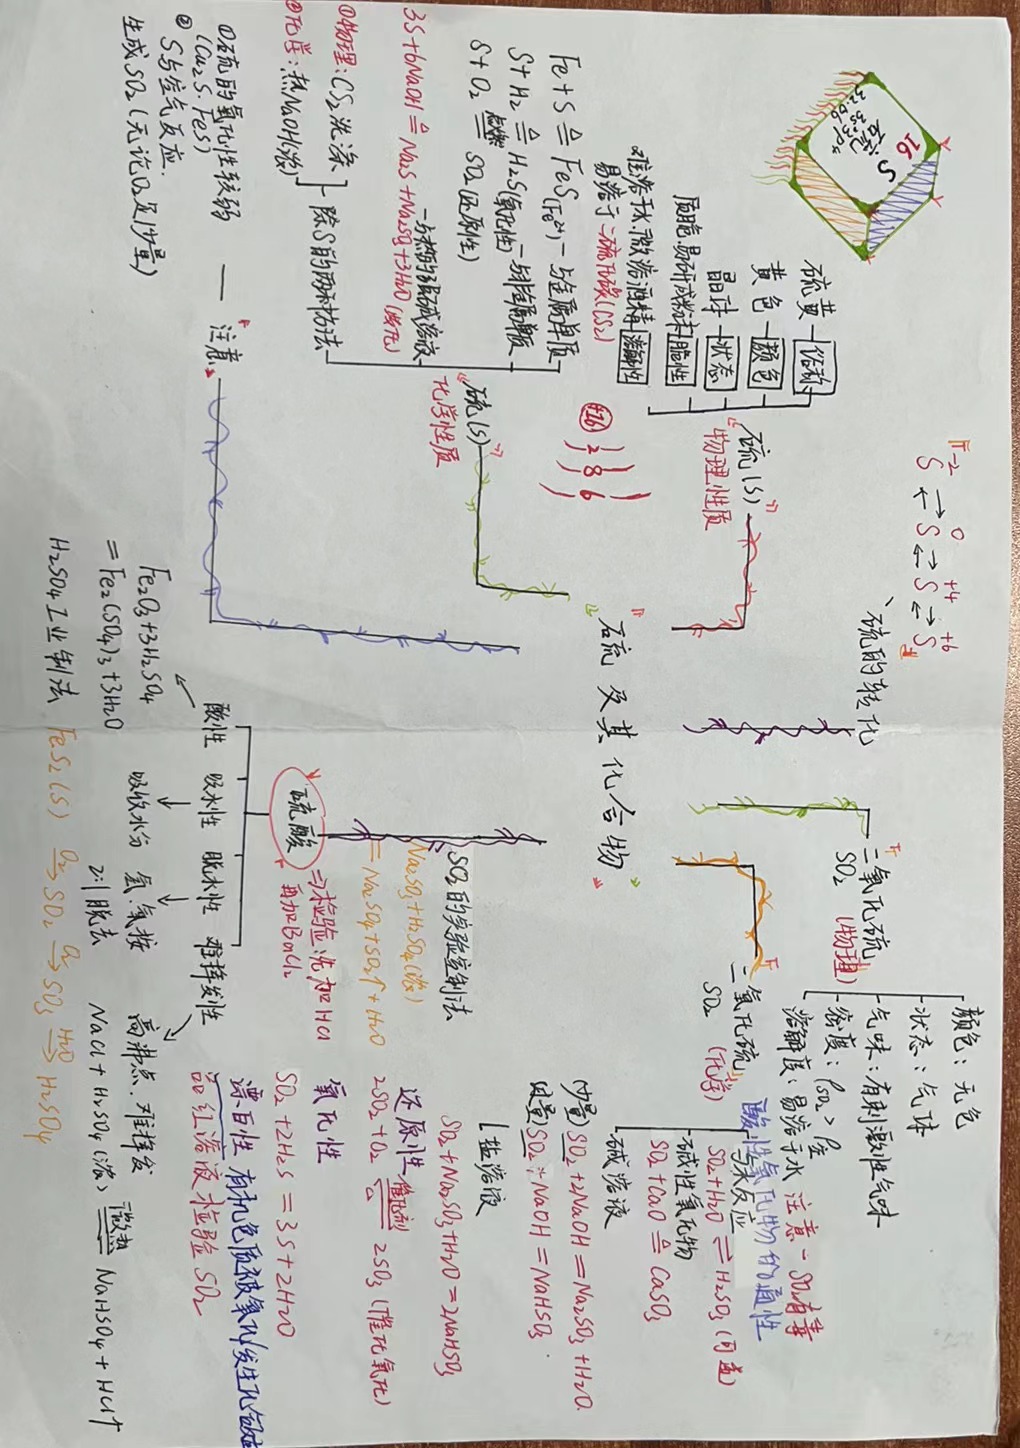 16
S
硫
32.06
硫的转化
-2 0 +4 +6
S ⇄ S ⇄ S ⇄ S
"硫(S)"
物理性质
俗称 — 硫黄
颜色 — 黄色
状态 — 晶体
脆性 — 质脆易研成粉末
溶解性 — 难溶于水,微溶酒精
易溶于二硫化碳(CS₂)
+16 2 8 6
"硫(S)"
化学性质
Fe + S ≜ FeS(Fe²⁺) — 与金属单质
S + H₂ ≜ H₂S(氧化性) — 与非金属单质
S + O₂ 点燃= SO₂(还原性)
— 与热的强碱溶液
3S+6NaOH ≜ Na₂S+Na₂SO₃+3H₂O(歧化)
除S的两种方法
①物理:CS₂洗涤
②化学:热NaOH(浓)
"注意"
①硫的氧化性较弱
(Cu₂S、FeS)
② S与空气反应
生成SO₂(无论O₂足/少量)
"硫及其化合物"
二氧化硫
SO₂ (物理)
颜色:无色
状态:气体
气味:有刺激性气味
密度:ρSO₂ > ρ空
溶解度:易溶于水 注意 - SO₂有毒
二氧化硫
SO₂ (化学)
酸性氧化物的通性
与水反应
SO₂+H₂O ⇌ H₂SO₃(可逆)
碱性氧化物
SO₂+CaO ≜ CaSO₃
碱溶液
(少量)SO₂+2NaOH=Na₂SO₃+H₂O.
(足量)SO₂+NaOH=NaHSO₃.
盐溶液
SO₂+Na₂SO₃+H₂O=2NaHSO₃
还原性
2SO₂+O₂ 催化剂⇌△ 2SO₃(催化氧化)
氧化性
SO₂+2H₂S=3S+2H₂O
漂白性 有机色质被氧化/发生化合反应
品红溶液检验SO₂
SO₂的实验室制法
Na₂SO₃+H₂SO₄(浓)
=Na₂SO₄+SO₂↑+H₂O
硫酸 ⇒检验:先加HCl
再加BaCl₂
酸性 吸水性 脱水性 难挥发性
Fe₂O₃+3H₂SO₄
=Fe₂(SO₄)₃+3H₂O
吸收水分
氢、氧按
2:1脱去
高沸点、难挥发
NaCl+H₂SO₄(浓) 微热= NaHSO₄+HCl↑
H₂SO₄工业制法 FeS₂(S) O₂→ SO₂ O₂→ SO₃ H₂O→ H₂SO₄